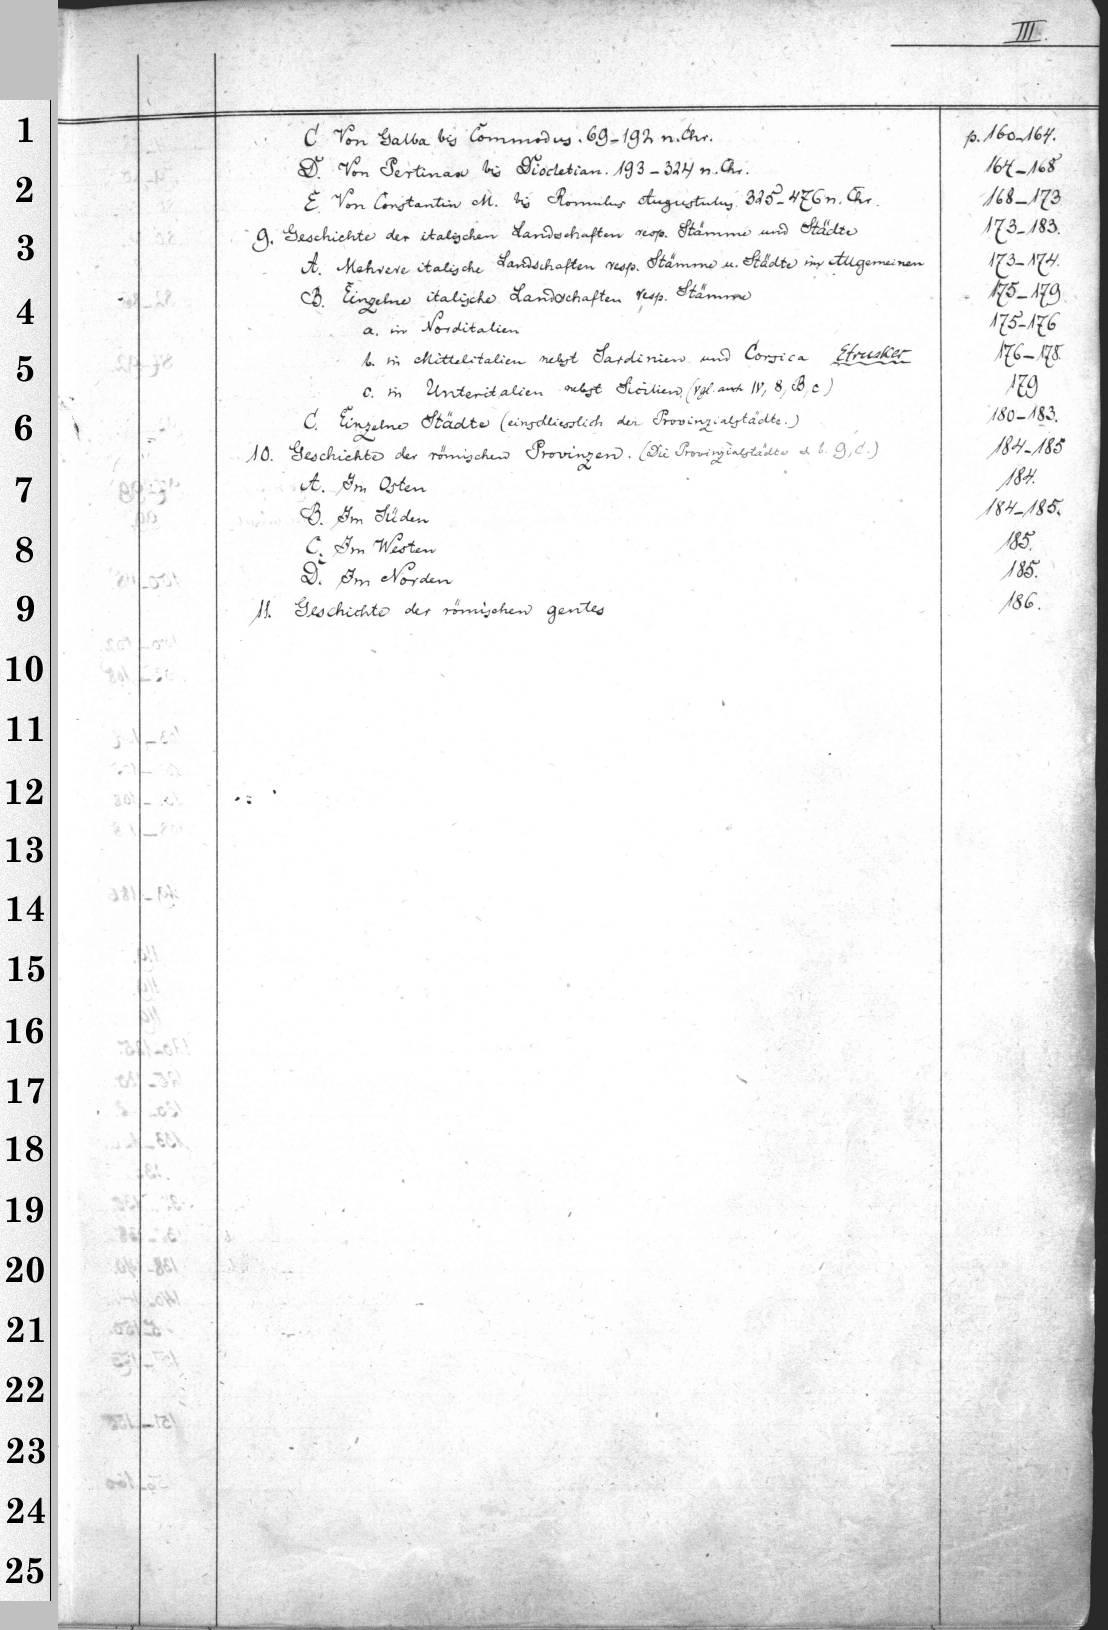 III.
1
C Von Galba bis Commodus. 69-192 n. Chr. p. 160-164.
D. Von Pertinax bis Diocletian. 193-324 n. Chr. 164-168
2
E. Von Constantin M. bis Romulus Augustulus. 325-476 n. Chr. 168-173
3
9. Geschichte der italischen Landschaften resp. Stämme und Städte 173-183.
A. Mehrere italische Landschaften resp. Stämme u. Städte im Allgemeinen 173-174.
B. Einzelne italische Landschaften resp. Stämme 175-179
4
a. in Norditalien 175-176
5
b. in Mittelitalien nebst Sardinien und Corsica Etrusker 176-178
c. in Unteritalien nebst Sicilien (vgl. auch IV, 8, B, c) 179
6
C. Einzelne Städte (einschliesslich der Provinzialstädte.) 180-183.
10. Geschichte der römischen Provinzen. (Die Provinzialstädte b. 9, C.) 184-185
7
A. Im Osten 184.
B. Im Süden 184-185.
8
C. Im Westen 185.
D. Im Norden 185.
9
11. Geschichte der römischen gentes 186.
10
11
12
13
14
15
16
17
18
19
20
21
22
23
24
25